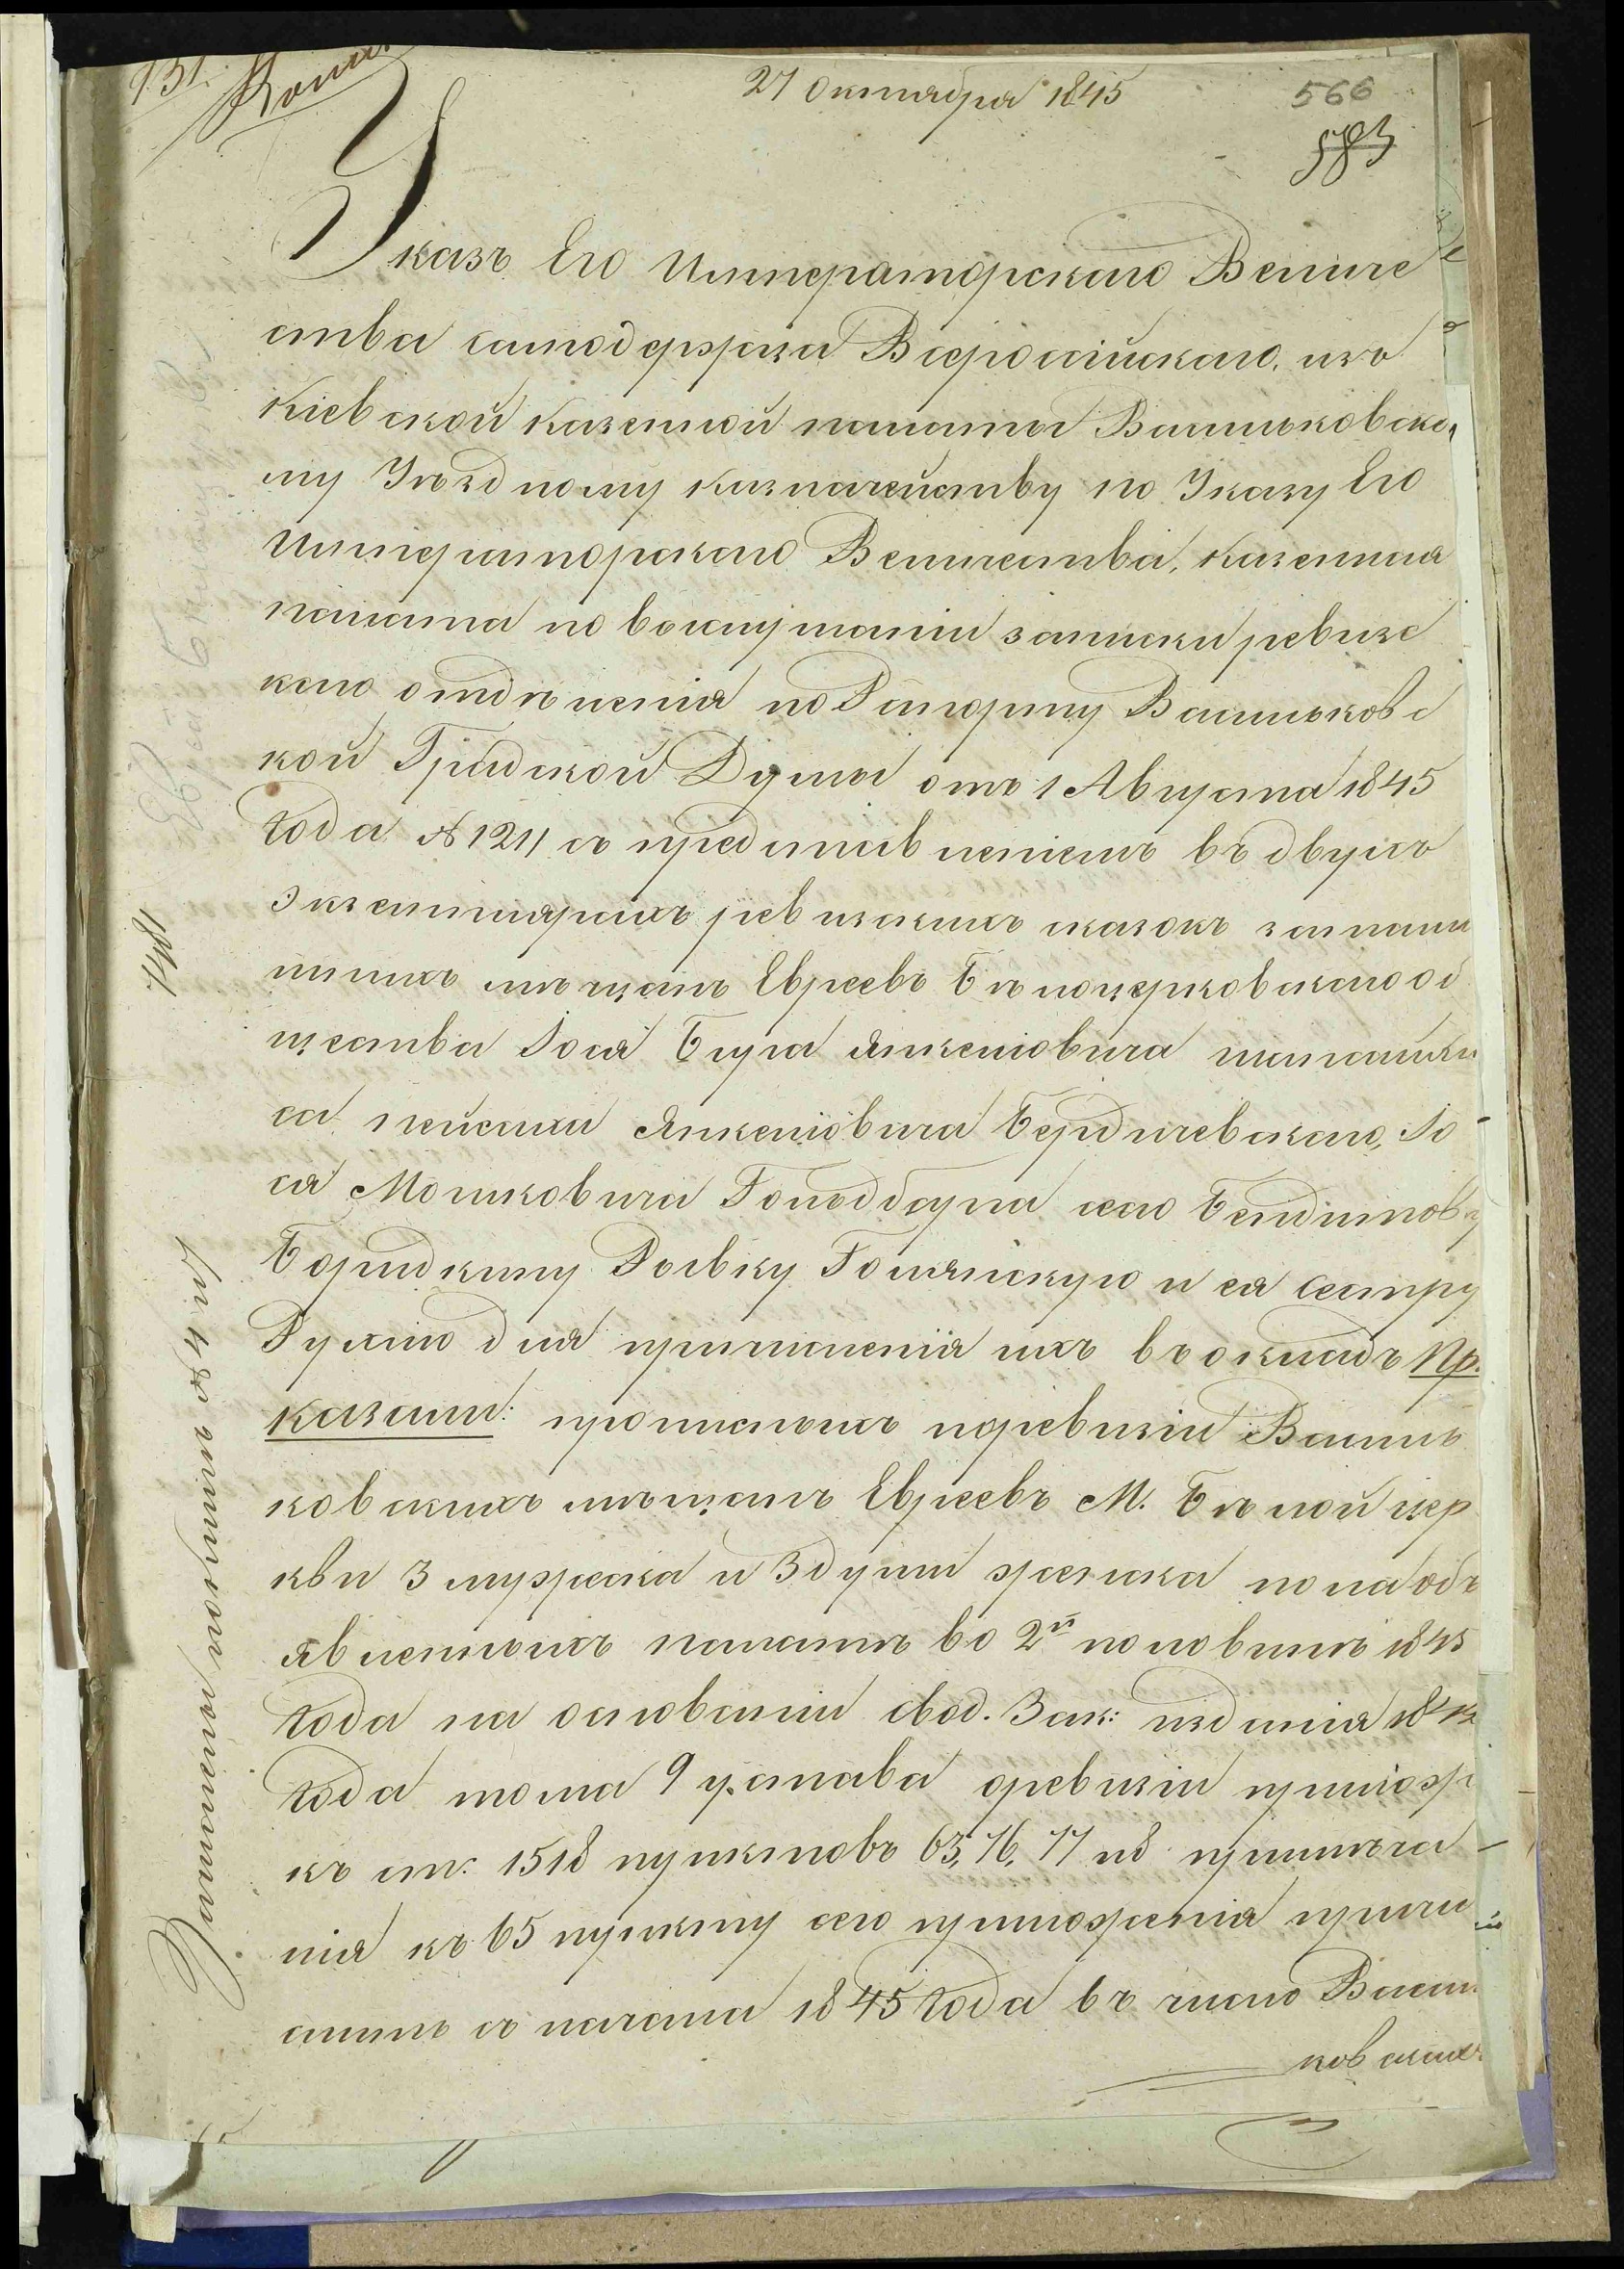 731.
Копия
27 Октября 1845
566
583
Указъ Его Императорскаго Величе
ства самодержца Всеросійскаго, изъ
Кіевской Казенной палаты Васильковско
му Уѣздному казначейству по Указу Его
Императорскаго Величества, Казенная
палата по выслушаніи записки ревизс
каго отдѣленія по Рапорту Васильковс
кой Градской Думы отъ 1 Августа 1845
года № 1211 съ представленіемъ въ двухъ
экземплярахъ ревизскихъ сказокъ
мѣщанъ Евреевъ Бѣлоцерковскаго об
щества Іося Бера Янкеловича
са пейсаха Янкеловича Бердичевскаго, Іо
ся Мошковича Гольдбурга
Рывку и ея сестру
Рухлю для причисленія ихъ въ окладъ Пр.
казали: прописныхъ по ревизіи Василь
ковскихъ мѣщанъ Евреевъ М. Бѣлой цер
кви 3 мужеска и 3 души женска пола объ
явленныхъ палатѣ во 2й половинѣ 1845
года на основаніи свод. Зак: изданія 1842
года тома 9 устава о ревизіи прилож
къ ст: 1518 пунктовъ 63, 76, 77 и 8 примѣча
нія къ 65 пункту сего приложенія причи
слить съ начала 1845 года въ число Василь
ковскихъ